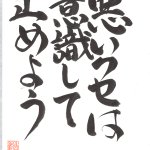 悪いクセは
意識して
止めよう